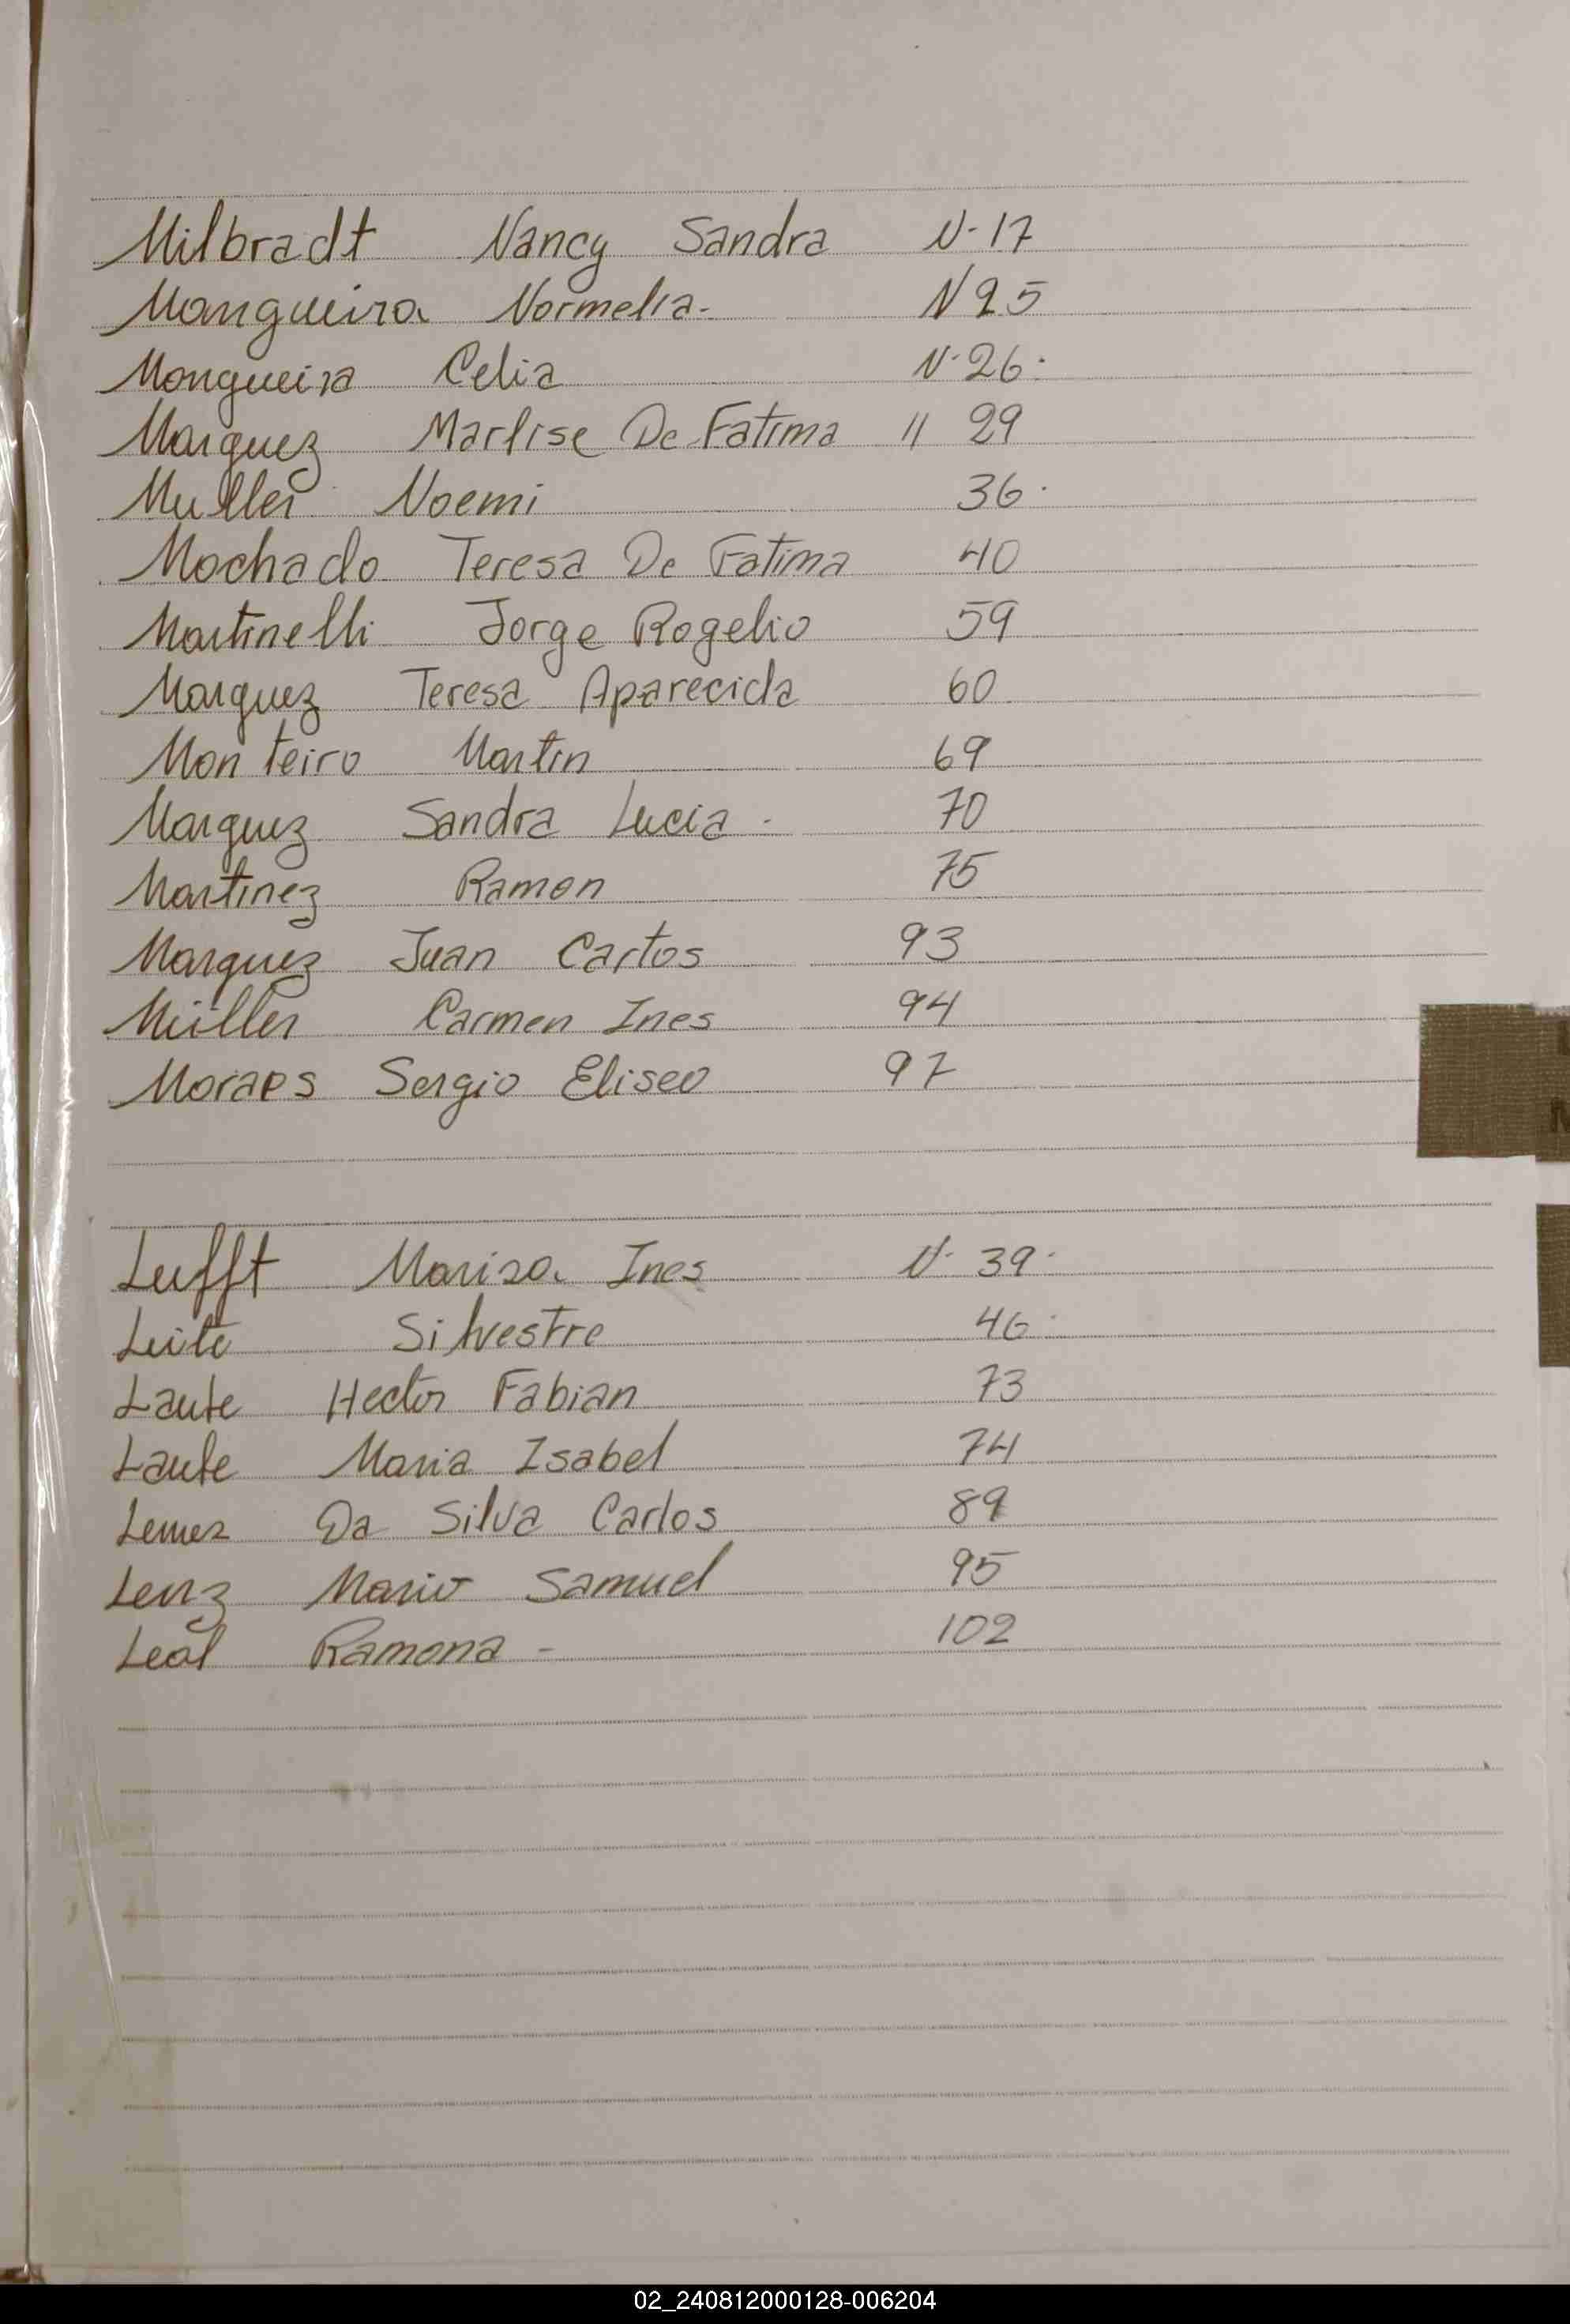 Milbradt Nancy Sandra N-17
Mangueira Normelia- N 25
Mangueira Celia N-26.
Marquez Marlise De Fatima " 29
Muller Noemi 36.
Machado Teresa De Fatima 40
Martinelli Jorge Rogelio 59
Marquez Teresa Aparecida 60
Monteiro Martin 69
Marquez Sandra Lucia - 70
Martinez Ramon 75
Marquez Juan Carlos 93
Müller Carmen Ines 94
Moraes Sergio Eliseo 97
L
M
Lufft Marisa Ines N- 39.
Leite Silvestre 46.
Laute Hector Fabian 73
Laute Maria Isabel 74
Lemes Da Silva Carlos 89
Lenz Mario Samuel 95
Leal Ramona - 102
02_240812000128-006204